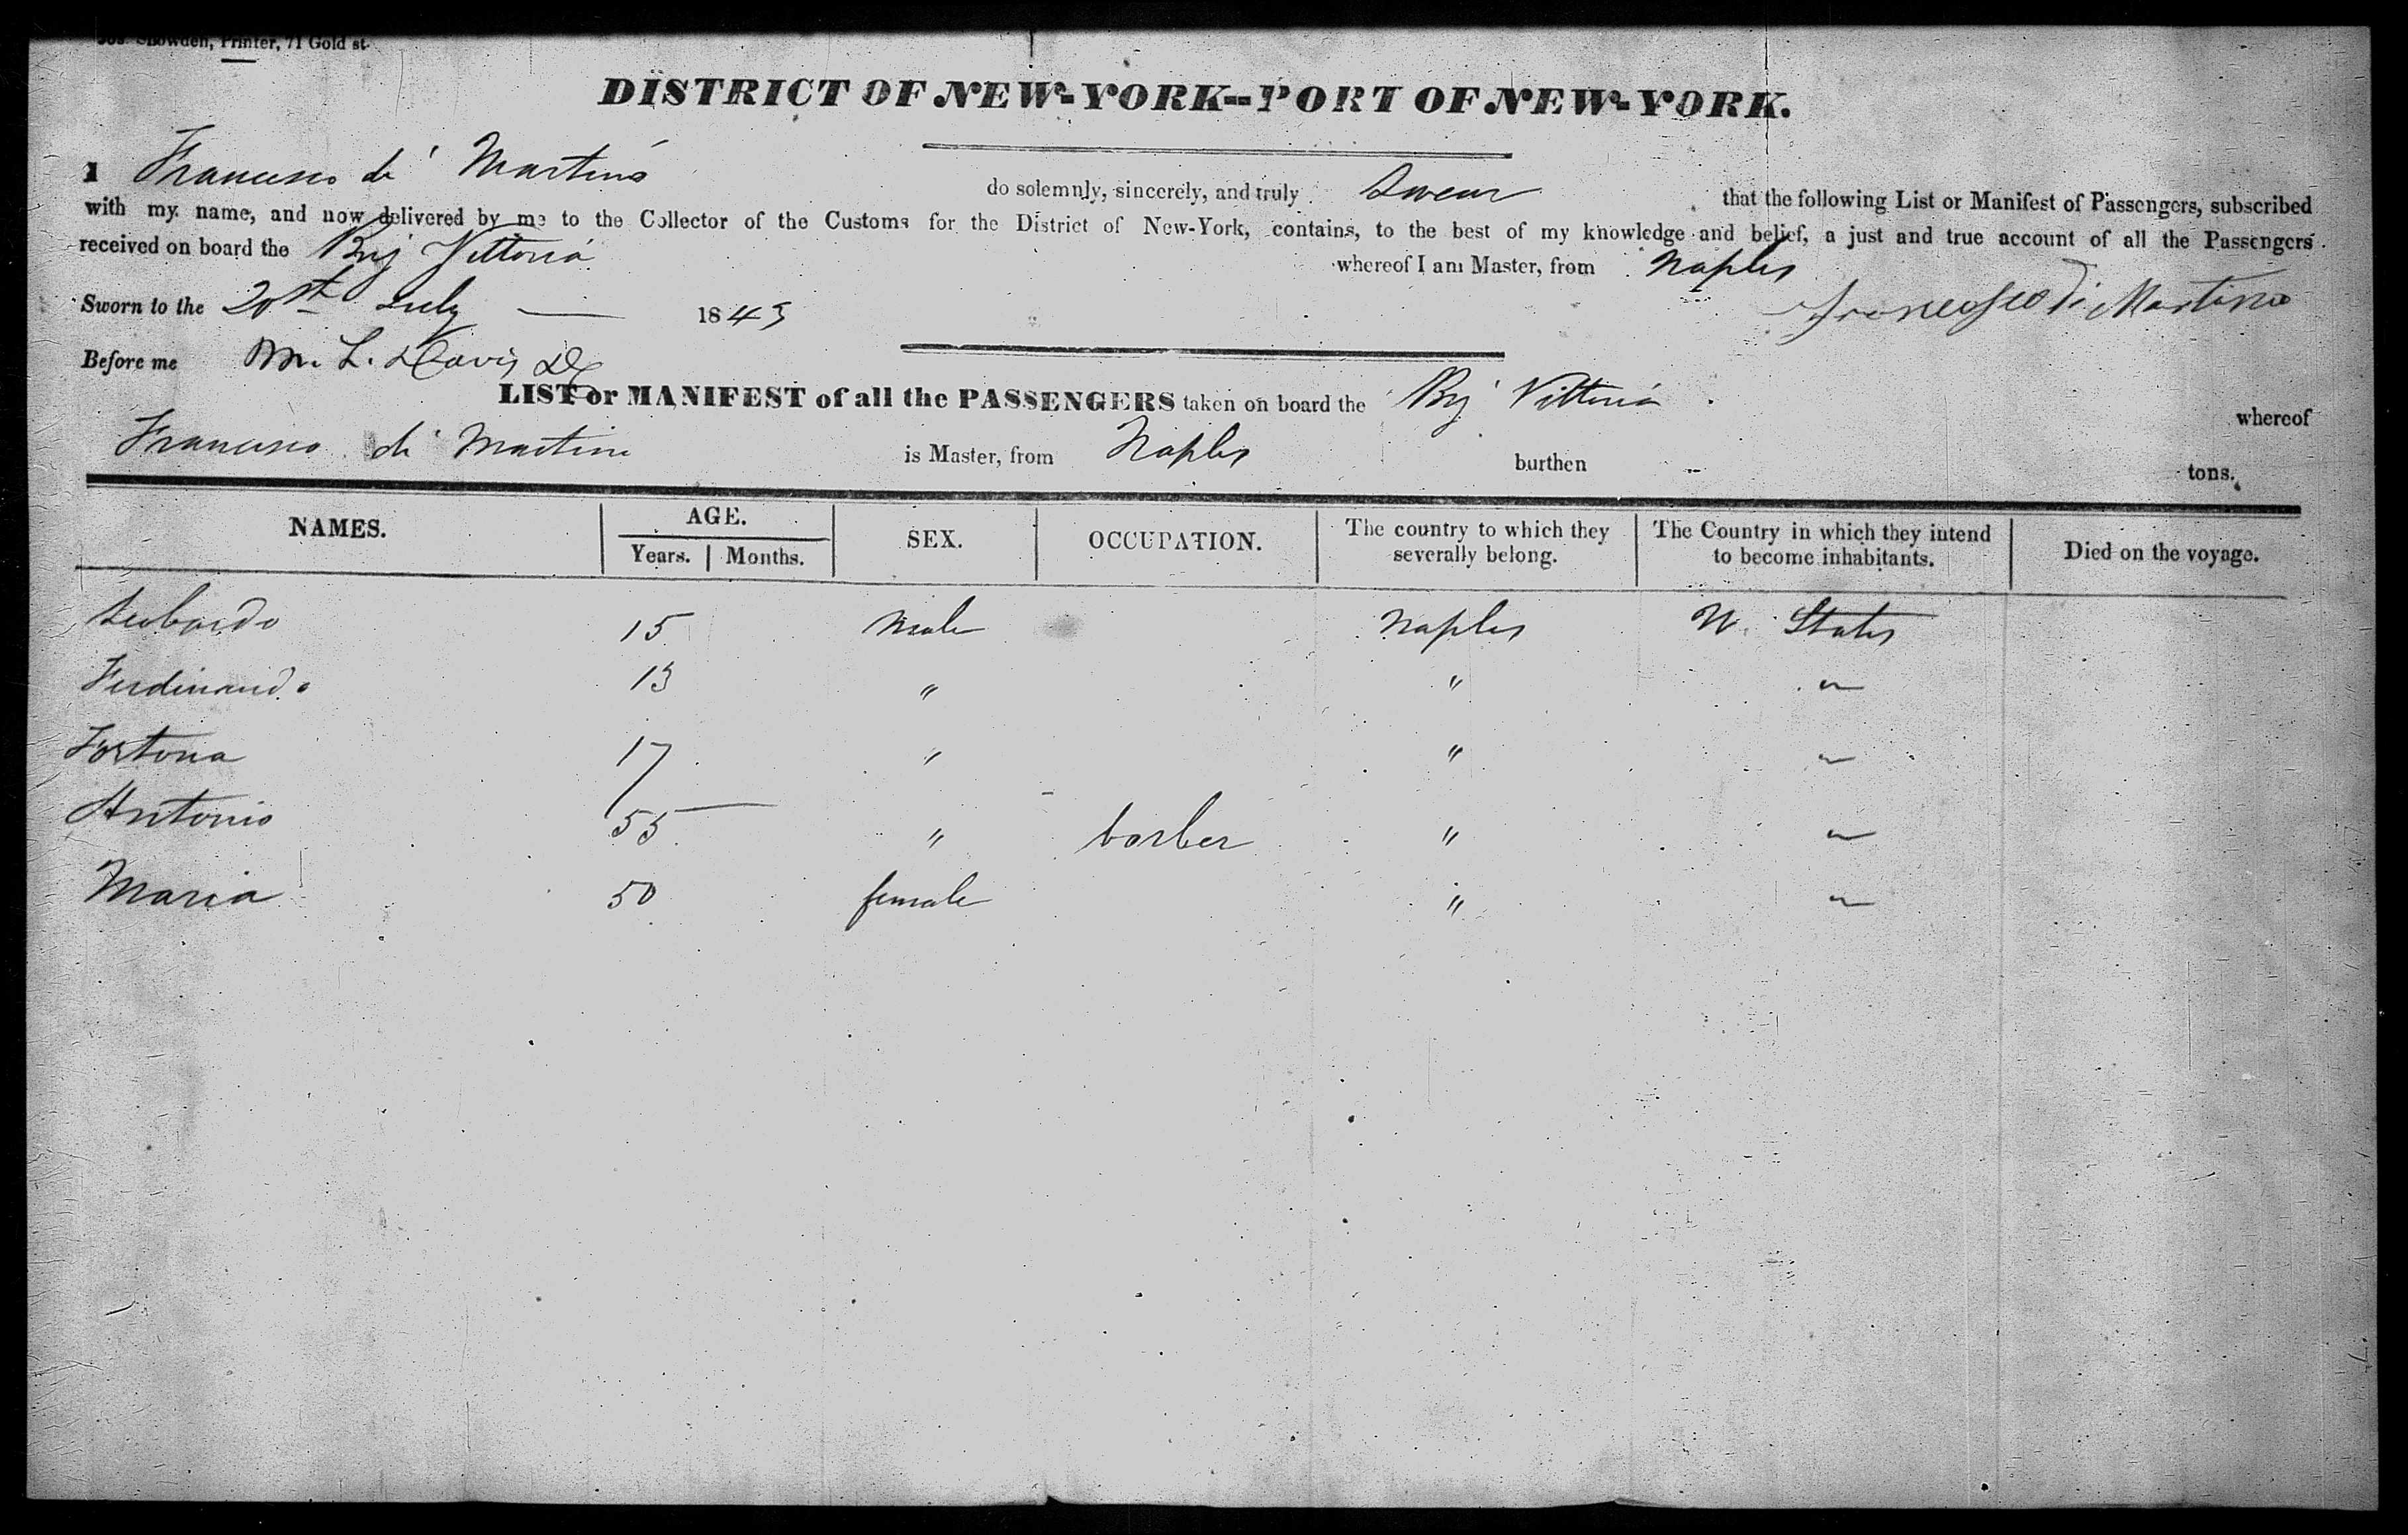 Printer, 71 Gold st.
DISTRICT OF NEW-YORK--PORT OF NEW-YORK.
I Francisco di Martino do solemnly, sincerely, and truly Swear that the following List or Manifest of Passengers, subscribed
with my name, and now delivered by me to the Collector of the Customs for the District of New-York, contains, to the best of my knowledge and belief, a just and true account of all the Passengers
received on board the Brig Vittoria whereof I am Master, from Naples
Sworn to the 20st July 1843 Francesco Di Martino
Before me M. L. Davis
LIST or MANIFEST of all the PASSENGERS taken on board the Brig Vittoria whereof
Francisco di Martino is Master, from Naples burthen tons.
NAMES. AGE. Years. Months. SEX. OCCUPATION. The country to which they severally belong. The Country in which they intend to become inhabitants. Died on the voyage.
15 Male Naples U. States
Ferdinando 13 " " "
Fortona 17 " " "
Antonio 55 " barber " "
Maria 50 female " "